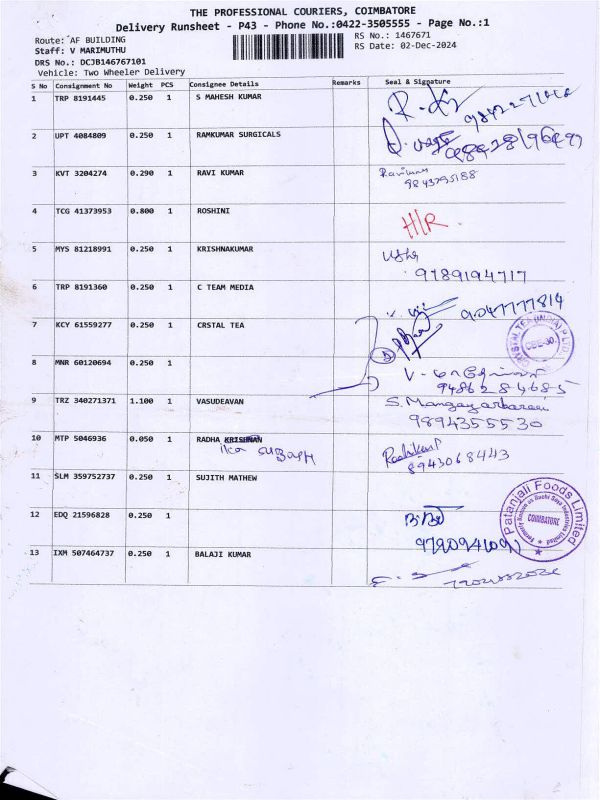 THE PROFESSIONAL COURIERS, COIMBATORE
Delivery Runsheet - P43 - Phone No.:0422-3505555 - Page No.:1
Route: AF BUILDING
RS No.: 1467671
Staff: V MARIMUTHU
RS Date: 02-Dec-2024
DRS No.: DCJB146767101
Vehicle: Two Wheeler Delivery
S No Consignment No Weight PCS Consignee Details Remarks Seal & Signature
1 TRP 8191445 0.250 1 S MAHESH KUMAR
2 UPT 4084809 0.250 1 RAMKUMAR SURGICALS
3 KVT 3204274 0.290 1 RAVI KUMAR
9843795188
4 TCG 41373953 0.800 1 ROSHINI H/R
5 MYS 81218991 0.250 1 KRISHNAKUMAR Usha
9789194717
6 TRP 8191360 0.250 1 C TEAM MEDIA
9047777814
7 KCY 61559277 0.250 1 CRSTAL TEA
8 MNR 60120694 0.250 1
9486284685
9 TRZ 340271371 1.100 1 VASUDEAVAN S. Mangayarkarasi
9894355530
10 MTP 5046936 0.050 1 RADHA KRISHNAN
SUBASH
8943068443
11 SLM 359752737 0.250 1 SUJITH MATHEW
12 EDQ 21596828 0.250 1
Patanjali Foods Limited
COIMBATORE
13 IXM 507464737 0.250 1 BALAJI KUMAR